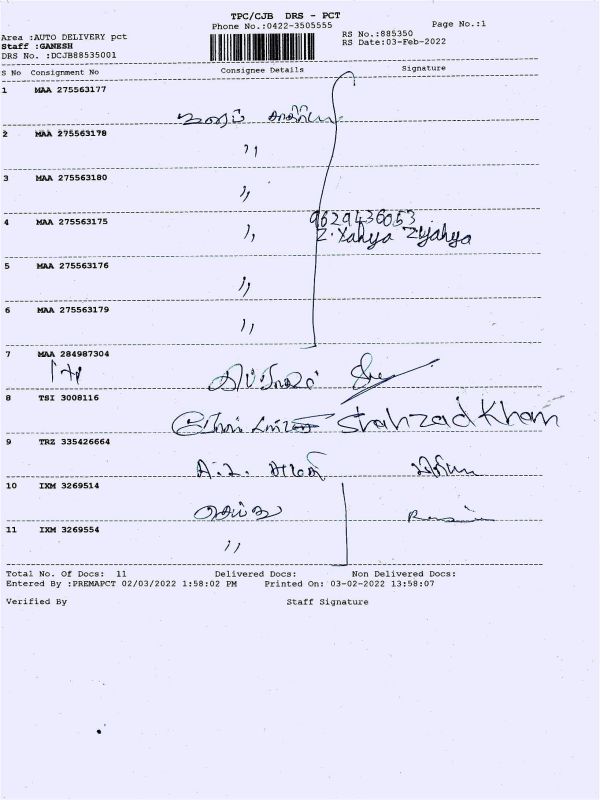 TPC/CJB DRS - PCT
Phone No.:0422-3505555
Page No.:1
Area :AUTO DELIVERY pct
RS No.:885350
Staff :GANESH
RS Date:03-Feb-2022
DRS No. :DCJB88535001
S No Consignment No Consignee Details Signature
1 MAA 275563177
2 MAA 275563178
,,
3 MAA 275563180
,,
4 MAA 275563175
9629436053
,, Z. Yahya
5 MAA 275563176
,,
6 MAA 275563179
,,
7 MAA 284987304
8 TSI 3008116
Shahzad Khan
9 TRZ 335426664
10 IXM 3269514
11 IXM 3269554
,,
Total No. Of Docs: 11 Delivered Docs: Non Delivered Docs:
Entered By :PREMAPCT 02/03/2022 1:58:02 PM Printed On: 03-02-2022 13:58:07
Verified By Staff Signature